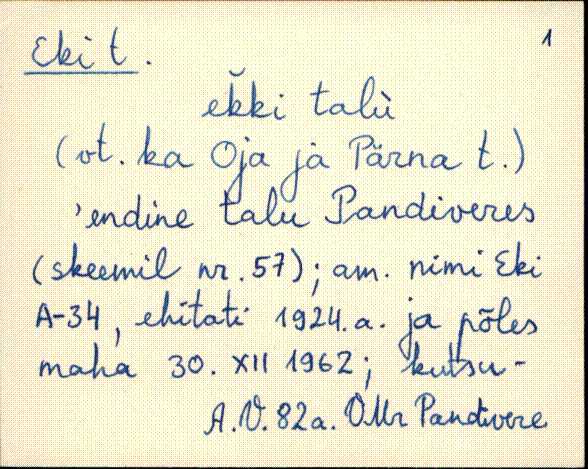 Eki t. 1
ek̆ki talù
(vt. ka Oja jà Pärna t.)
'endine talu Pandiveres
(skeemil nr. 57); am. nimi Eki
A-34, ehitati 1924. a. ja põles
maha 30. XII 1962; kutsu-
A.V. 82a. VMr Pandivere